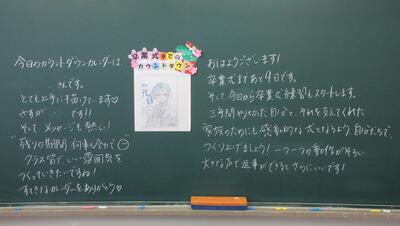 今日のカウントダウンカレンダーは
さんです。
とても上手に描けています♡
さすが です!!
そして、メッセージも熱い!
"残りの期間 何事も全力で
クラス皆で、いい雰囲気を
つくっていきたいですね!
すてきなカレンダーをありがとう♡
卒業式までの
カウントダウン
九日
おはようございます!
卒業式まであと9日です。
そして今日から卒業式練習もスタートします。
三年間がんばった自分と、それを支えてくれた
家族のためにも感動的な式となるよう自分たちで、
つくり上げましょう! 一つ一つの動作がそろい
大きな声で返事ができるとさらにいいです!